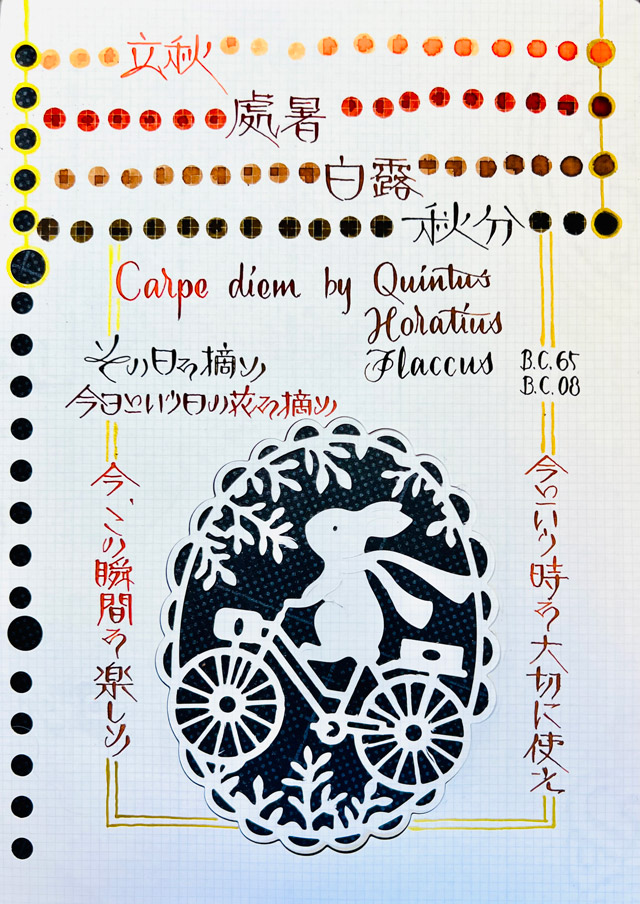 立秋
處暑
白露
秋分
Carpe diem by Quintus
Horatius
Flaccus
B.C. 65
B.C. 08
その日を摘め
今日という日の花を摘め
今、この瞬間を楽しめ
今という時を大切に使え